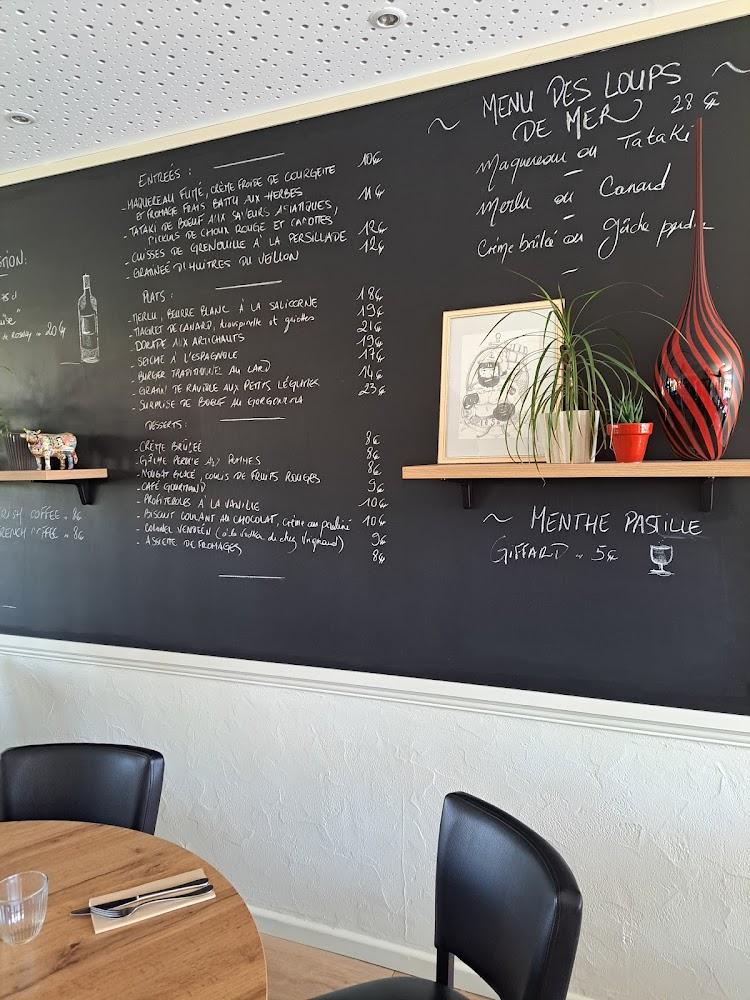 MENU DES LOUPS
DE MER 28€
Maquereau ou Tataki
Merlu ou Canard
Crème brûlée ou gâche perdue
ENTREÉS :
- MAQUEREAU FUMÉ, CRÈME FROIDE DE COURGETTE 10€
ET FROMAGE FRAIS BATTU AUX HERBES
- TATAKI DE BOEUF AUX SAVEURS ASIATIQUES, 11€
PICKLES DE CHOUX ROUGE ET CAROTTES,
- CUISSES DE GRENOUILLE À LA PERSILLADE 12€
- GRATINÉE D'HUITRES DU VEILLON 12€
PLATS :
- MERLU, BEURRE BLANC À LA SALICORNE 18€
- MAGRET DE CANARD, et griottes 19€
- DORADE AUX ARTICHAUTS 21€
- SEICHE À L'ESPAGNOLE 19€
- BURGER TRADITIONNEL AU LARD 17€
- GRATIN DE RAVIOLE AUX PETITS LÉGUMES 14€
- SURPRISE DE BOEUF AU GORGONZOLA 23€
DESSERTS :
- CRÈME BRÛLEÉ 8€
- GÂCHE PERDUE AUX POMMES 8€
- NOUGAT GLACÉ, COULIS DE FRUITS ROUGES 8€
- CAFÉ GOURMAND 9€
- PROFITEROLES À LA VANILLE 10€
- BISCUIT COULANT AU CHOCOLAT, crème au praliné 10€
- COLONEL VENDÉEN (à la vodka de chez Vrignaud) 9€
- ASSIETTE DE FROMAGES 8€
TION:
75 cl
de Rosnay 20€
IRISH COFFEE 8€
FRENCH COFFEE 8€
~ MENTHE PASTILLE
GIFFARD 5€